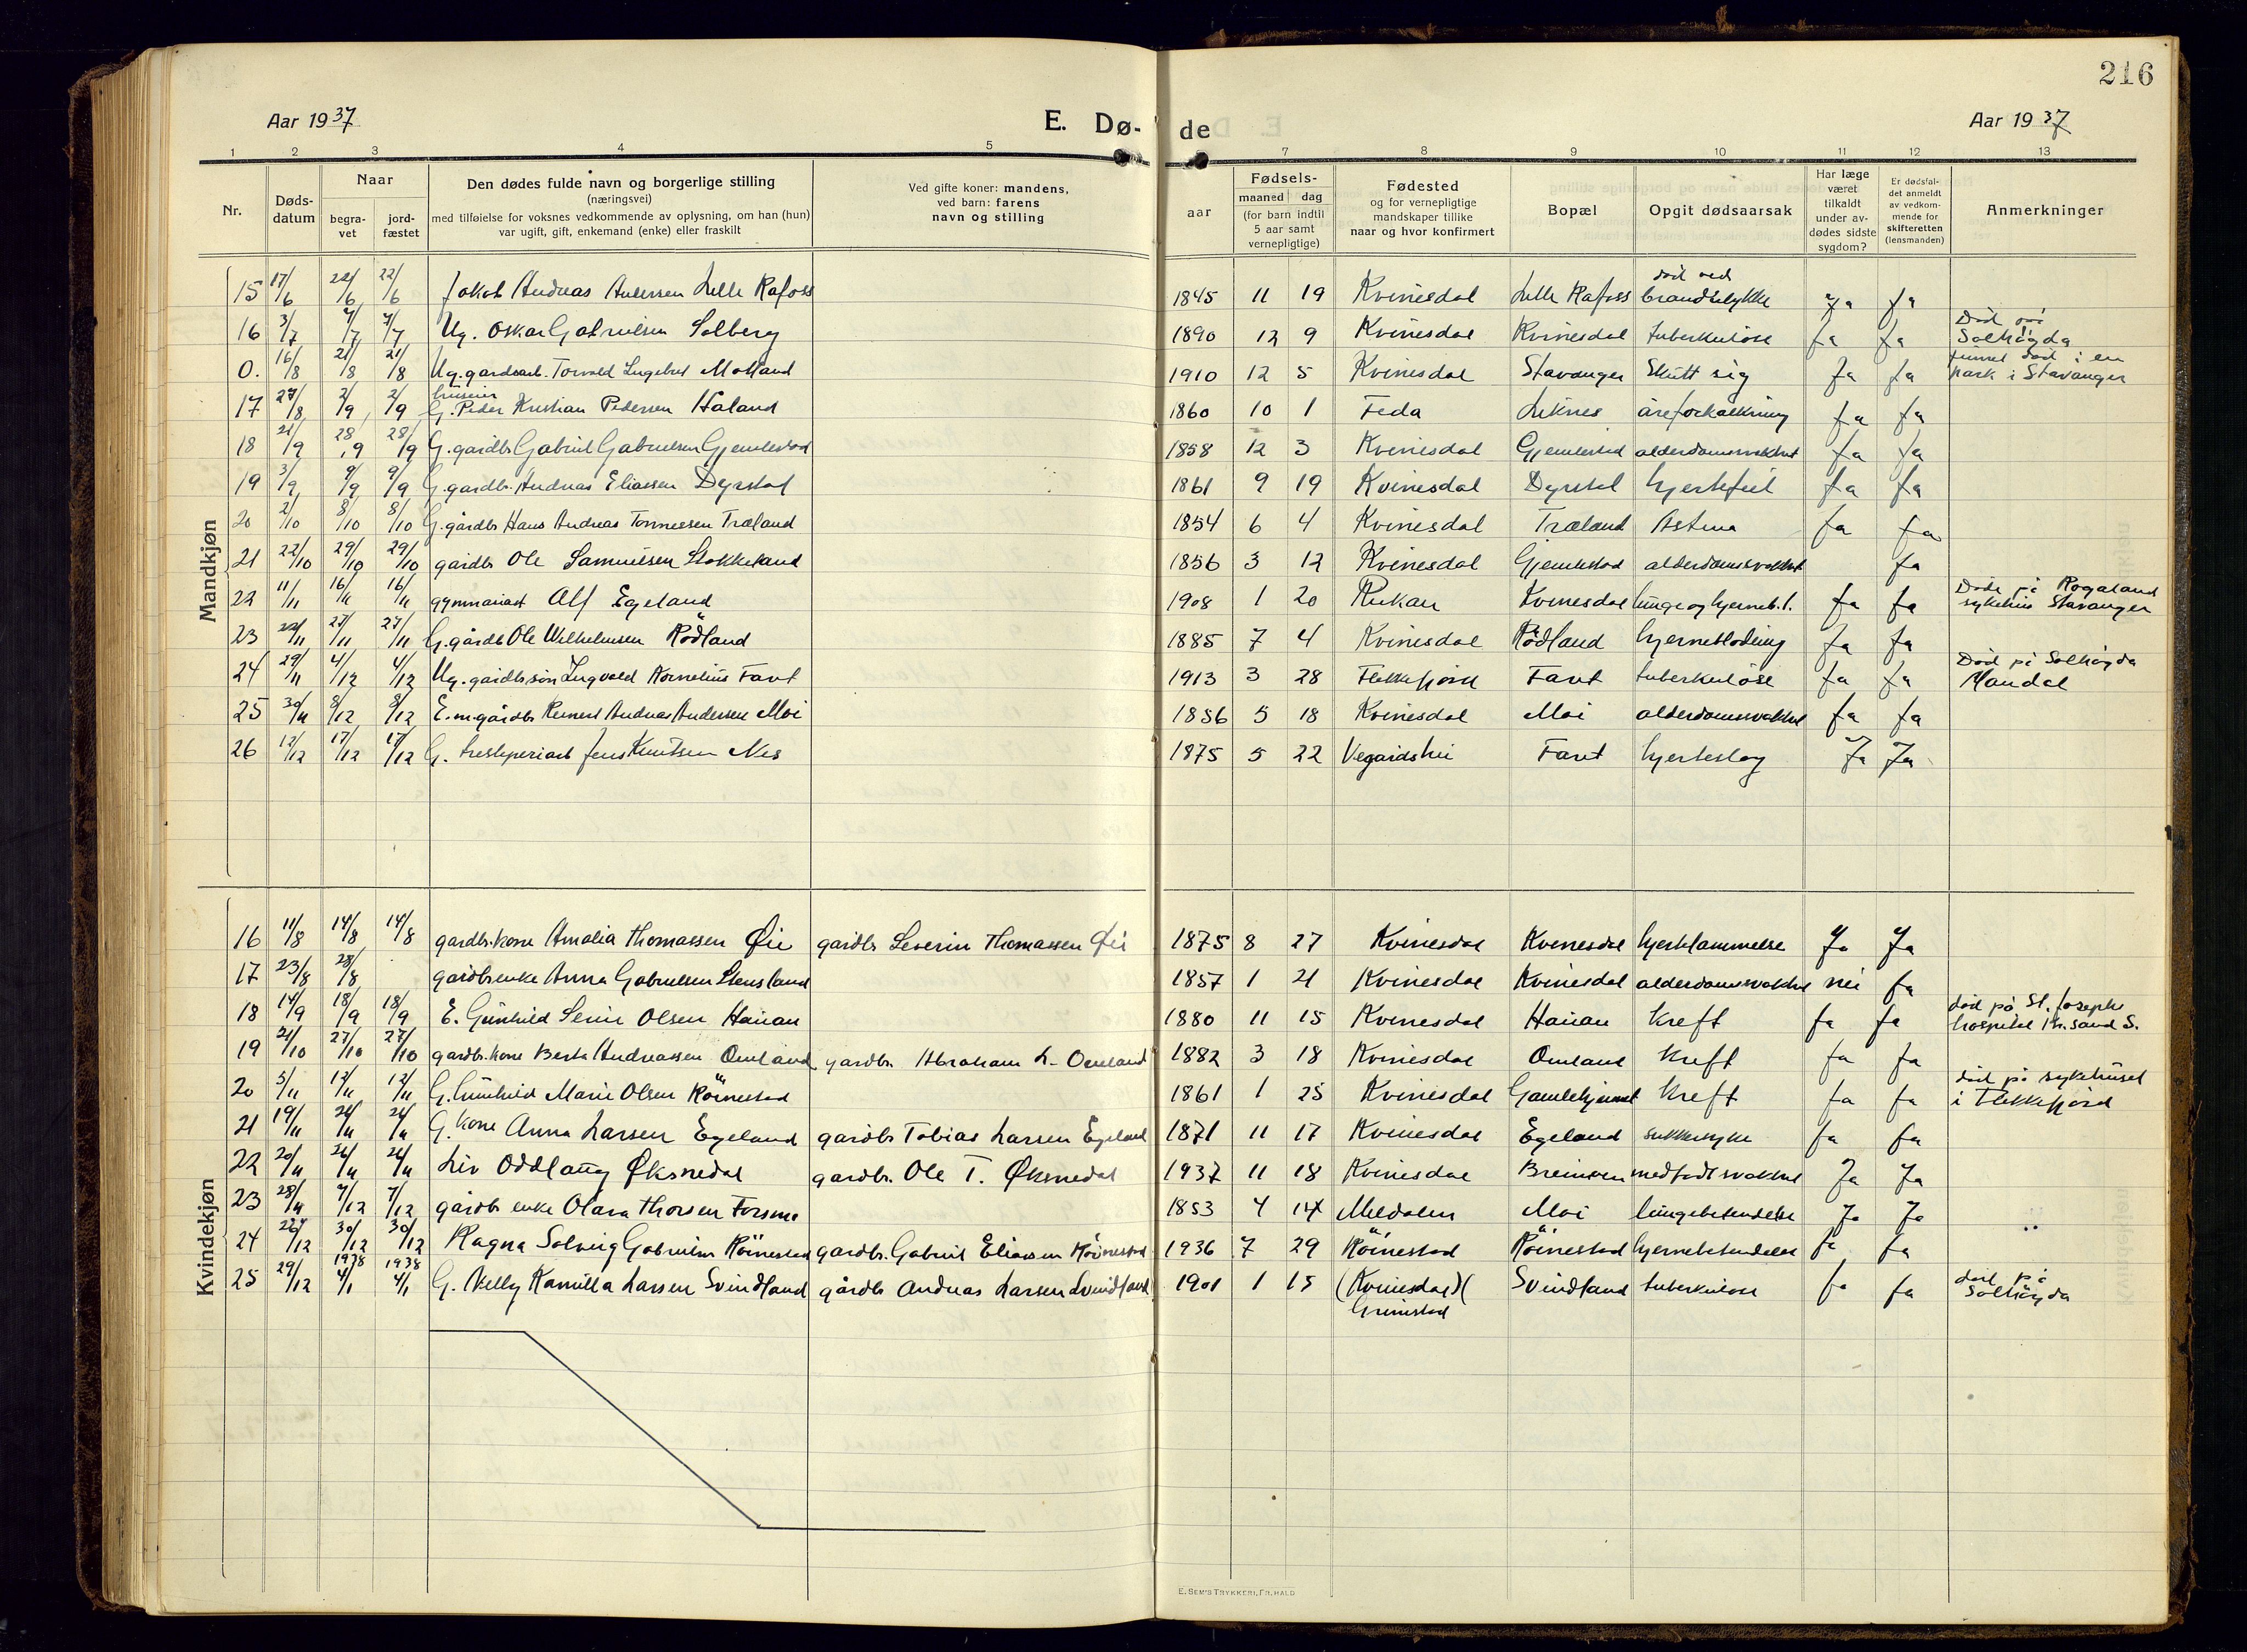 216
Aar 1937
E. Dø- de
Aar 1937
1 2 3 4 5 7 8 9 10 11 12 13
Nr.
Døds-
datum
Naar
begra-
vet
jord-
fæstet
Den dødes fulde navn og borgerlige stilling
(næringsvei)
med tilføielse for voksnes vedkommende av oplysning, om han (hun)
var ugift, gift, enkemand (enke) eller fraskilt
Ved gifte koner: mandens,
ved barn: farens
navn og stilling
Fødsels-
aar
maaned dag
(for barn indtil
5 aar samt
vernepligtige)
Fødested
og for vernepligtige
mandskaper tillike
naar og hvor konfirmert
Bopæl
Opgit dødsaarsak
Har læge
været
tilkaldt
under av-
dødes sidste
sygdom?
Er dødsfal-
det anmeldt
av vedkom-
mende for
skifteretten
(lensmanden)
Anmerkninger
Mandkjøn
15 17/6 22/6 22/6 Jakob Andreas Andersen Lille Rafoss 1845 11 19 Kvinesdal Lille Rafoss död ved brandulykke Ja Ja
16 3/7 7/7 7/7 Ug. Oskar Gabrielsen Solberg 1890 12 9 Kvinesdal Kvinesdal tuberkulöse Ja Ja Död på Solhögda
0. 16/8 21/8 21/8 Ug. gardsarb. Torvald Ingebret Molland 1910 12 5 Kvinesdal Stavanger Skutt sig Ja Ja funnet död i en park i Stavanger
17 27/8 2/9 2/9 G. huseier Peder Kristian Pedersen Haland 1860 10 1 Feda Liknes åreforkalkning Ja Ja
18 21/9 28/9 28/9 G. gardbr. Gabriel Gabrielsen Gjemlestad 1858 12 3 Kvinesdal Gjemlestad alderdomssvakhet Ja Ja
19 3/9 9/9 9/9 G. gardbr. Andreas Eliassen Dyrstad 1861 9 19 Kvinesdal Dyrstad hjertefeil Ja Ja
20 2/10 8/10 8/10 G. gårdbr Hans Andreas Tönnessen Træland 1854 6 4 Kvinesdal Træland Astma Ja Ja
21 22/10 29/10 29/10 gårdbr Ole Samuelsen Stokkeland 1856 3 12 Kvinesdal Gjemlestad alderdomssvakhet Ja
22 11/11 16/11 16/11 gymnasiast Alf Egeland 1908 1 20 Rukan Kvinesdal lunge og hjerneb. t. Ja Ja Döde på Rogaland sykehus Stavanger
23 22/11 27/11 27/11 G. gårdb Ole Wilhelmsen Rödland 1885 7 4 Kvinesdal Rödland hjernebödning Ja Ja
24 29/11 4/12 4/12 Ug. gårdbr.sön Ingvald Kornelius Faret 1913 3 28 Flekkefjord Faret tuberkulöse Ja Ja Död på Solhögda Mandal
25 30/11 8/12 8/12 E.m. gårdbr Reinert Andreas Andersen Moi 1856 5 18 Kvinesdal Moi alderdomsvakhet Ja Ja
26 12/12 17/12 17/12 G. treskperiarb Jens Knutsen Nes 1875 5 22 Vegårdshei Faret hjerteslag Ja Ja
Kvindekjøn
16 11/8 14/8 14/8 gardbr.kone Amalia Thomassen Øie gardbr Severin Thomassen Øie 1875 8 27 Kvinesdal Kvinesdal hjertelammelse Ja Ja
17 23/8 28/8 gardbr.enke Anna Gabrielsen Stensland 1857 1 21 Kvinesdal Kvinesdal alderdomssvakhet nei Ja
18 14/9 18/9 18/9 E. Gunhild Serine Olsen Hanan 1880 11 15 Kvinesdal Hanan Kreft Ja Ja död på St. Josephs hospital Kr.sand S.
19 21/10 27/10 27/10 gardbr.kone Berta Andreassen Omland gardbr. Abraham L. Omland 1882 3 18 Kvinesdal Omland Kreft Ja Ja
20 5/11 12/11 12/11 G. Gunhild Marie Olsen Röinestad 1861 1 25 Kvinesdal Gamlehjemmet Kreft Ja Ja död på sykehuset i Flekkefjord
21 19/11 24/11 24/11 G. kone Anna Larsen Egeland gardbr Tobias Larsen Egeland 1871 11 17 Kvinesdal Egeland sukkersyke Ja Ja
22 20/11 26/11 26/11 Liv Oddlaug Øksnedal gardbr. Ole T. Øksnedal 1937 11 18 Kvinesdal Breimoen medfödt svakhet Ja Ja
23 28/11 7/12 7/12 gårdb enke Olava Thorsen Forsmo 1853 4 14 Meldalen Moi lungebetendelse Ja Ja
24 /12 30/12 30/12 Ragna Solveig Gabrielsen Röinestad gardbr. Gabriel Eliassen Röinestad 1936 7 29 Röinestad Röinestad hjernebetendelse Ja Ja
25 29/12 1938 4/1 1938 4/1 G. Nelly Kamilla Larsen Svindland gårdbr Andreas Larsen Svindland 1901 1 15 (Kvinesdal)( Grimstad Svindland tuberkulose Ja Ja död på Solhögda
E. SEM'S TRYKKERI, FR. HALD